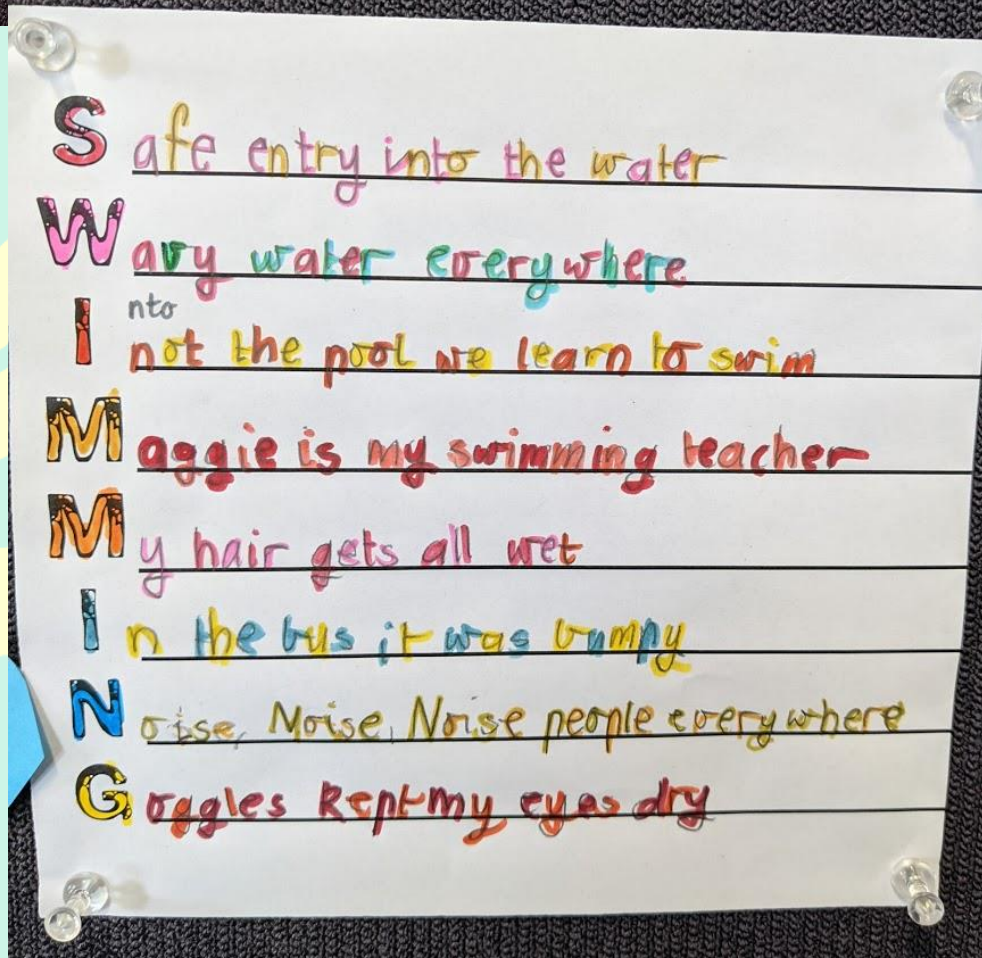 Safe entry into the water
Wavy water everywhere
nto
Inot the pool we learn to swim
Maggie is my swimming teacher
My hair gets all wet
In the bus it was bumpy
Noise, Noise, Noise people everywhere
Goggles Kept my eyes dry